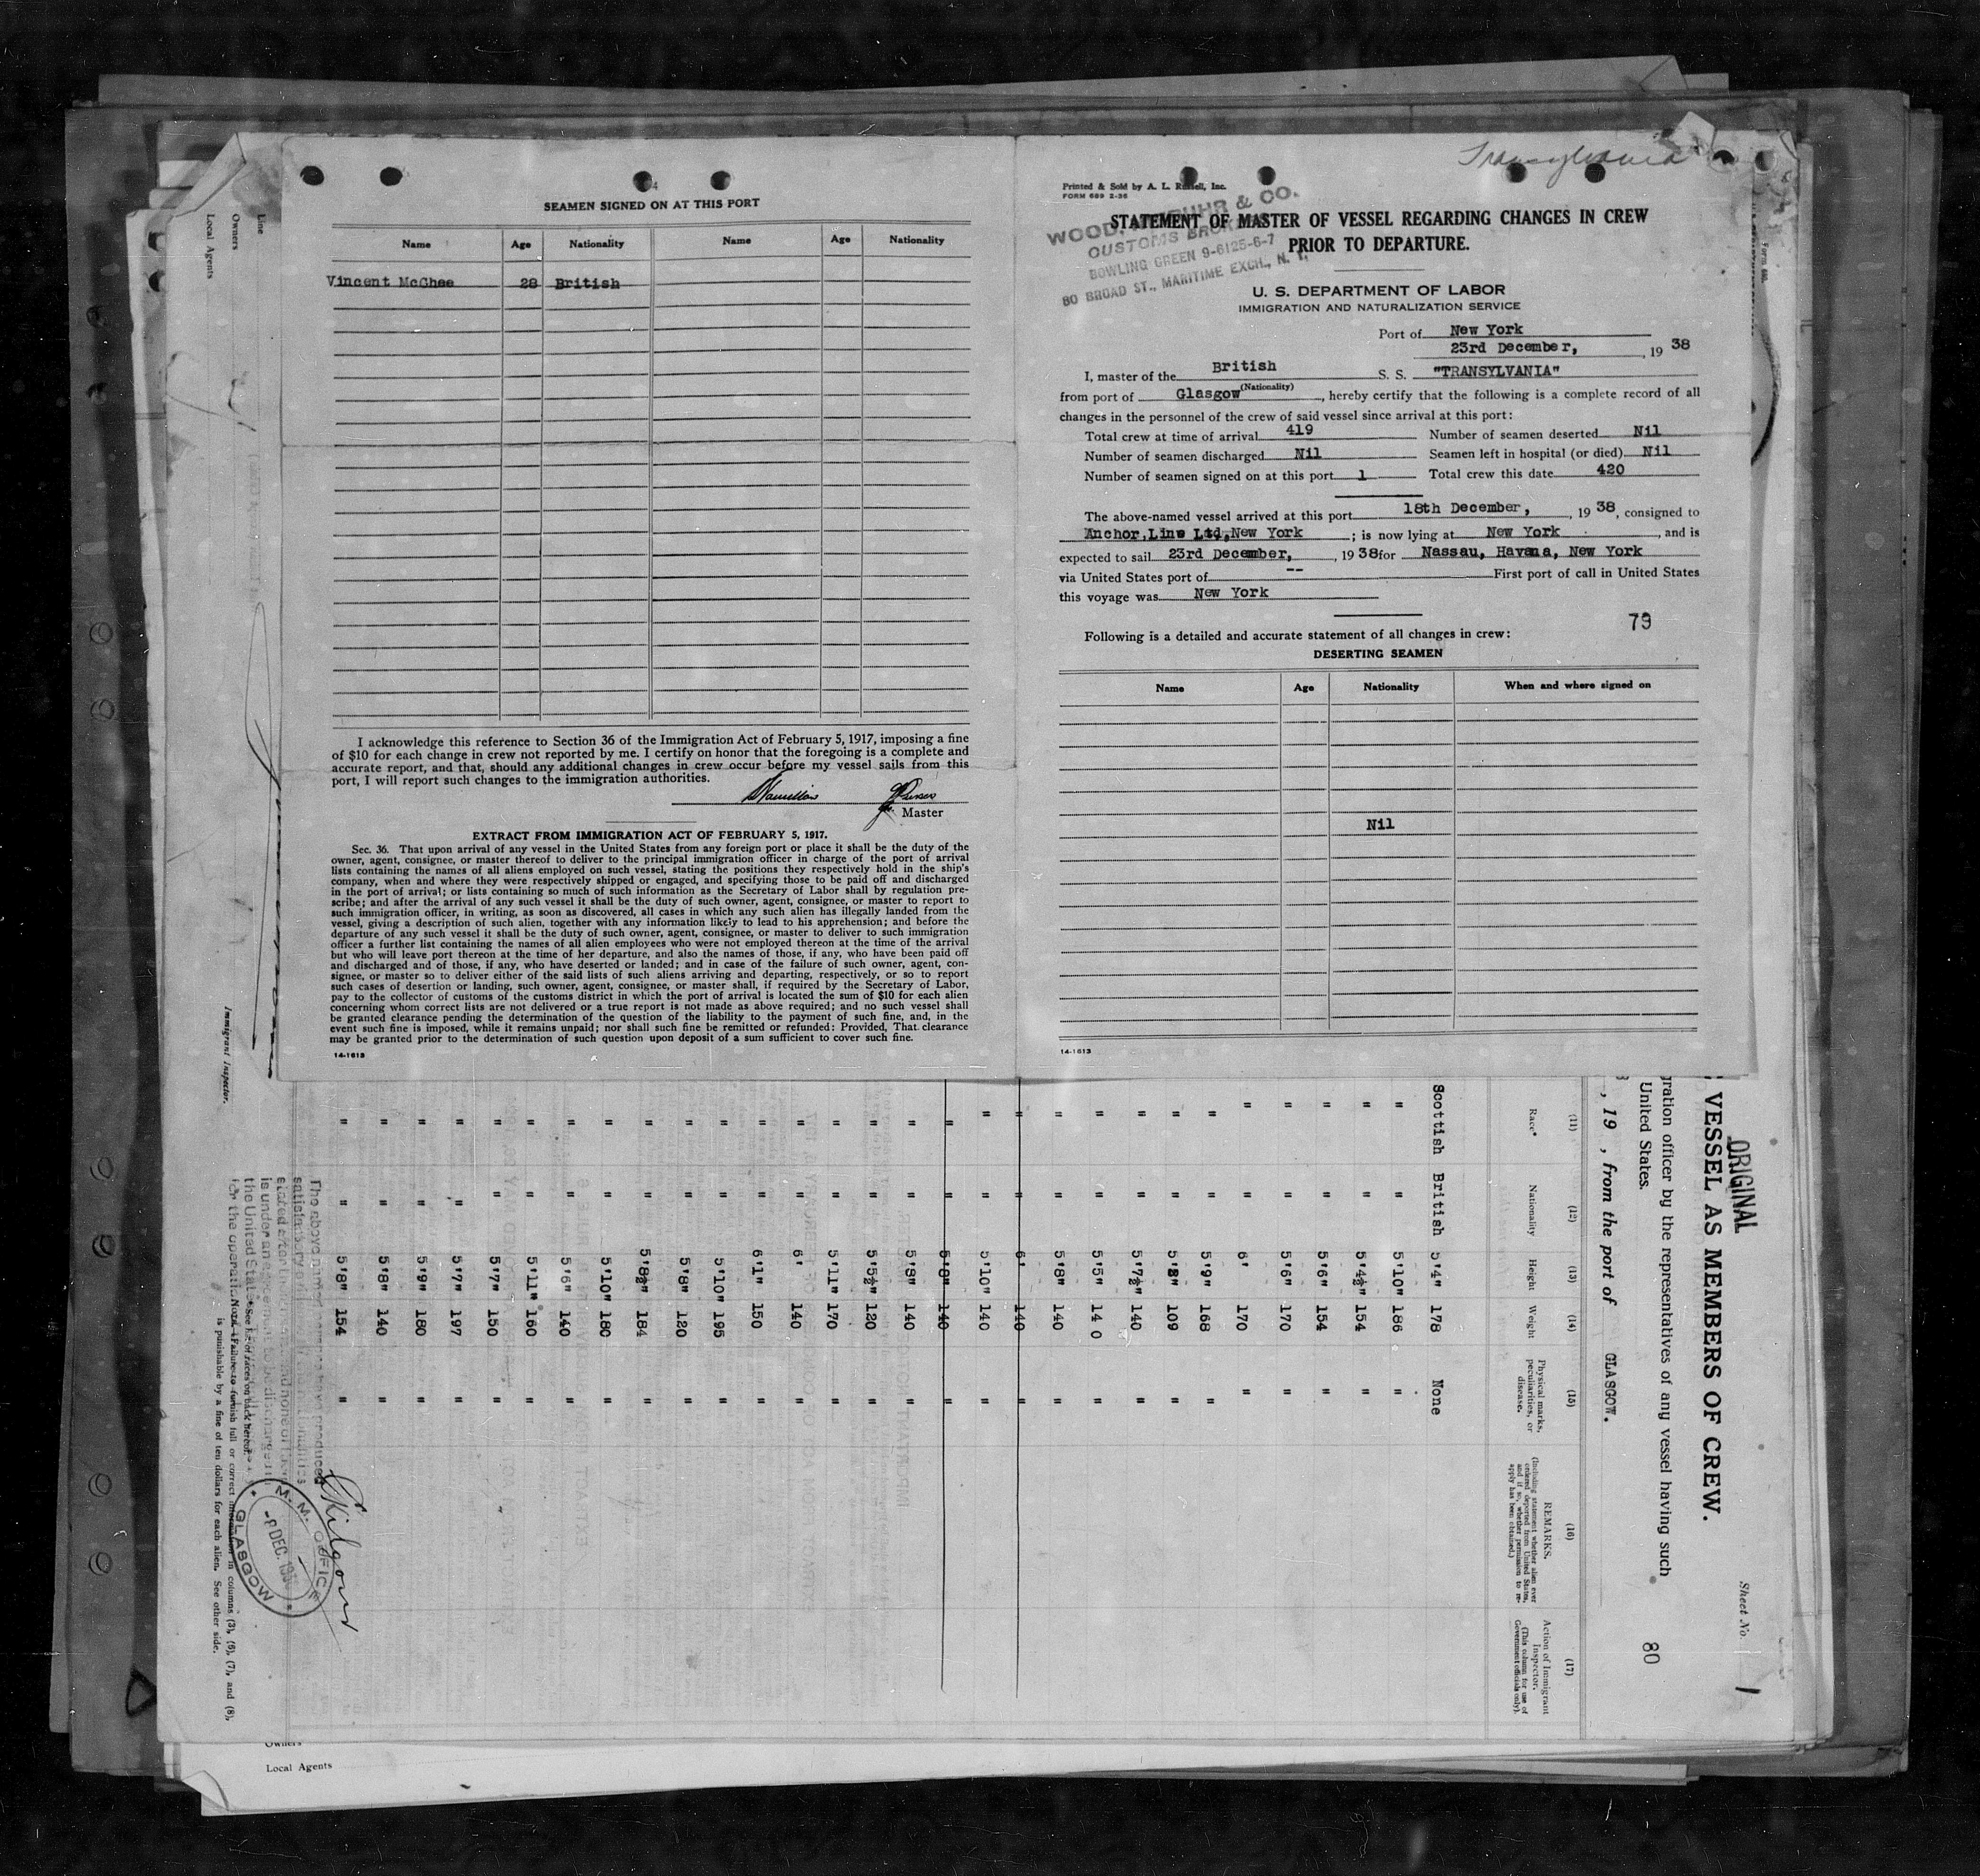 Transylvania
SEAMEN SIGNED ON AT THIS PORT
Name Age Nationality Name Age Nationality
Vincent McGhee 28 British
I acknowledge this reference to Section 36 of the Immigration Act of February 5, 1917, imposing a fine
of $10 for each change in crew not reported by me. I certify on honor that the foregoing is a complete and
accurate report, and that, should any additional changes in crew occur before my vessel sails from this
port, I will report such changes to the immigration authorities.
Master
EXTRACT FROM IMMIGRATION ACT OF FEBRUARY 5, 1917.
Sec. 36. That upon arrival of any vessel in the United States from any foreign port or place it shall be the duty of the
owner, agent, consignee, or master thereof to deliver to the principal immigration officer in charge of the port of arrival
lists containing the names of all aliens employed on such vessel, stating the positions they respectively hold in the ship's
company, when and where they were respectively shipped or engaged, and specifying those to be paid off and discharged
in the port of arrival; or lists containing so much of such information as the Secretary of Labor shall by regulation pre-
scribe; and after the arrival of any such vessel it shall be the duty of such owner, agent, consignee, or master to report to
such immigration officer, in writing, as soon as discovered, all cases in which any such alien has illegally landed from the
vessel, giving a description of such alien, together with any information likely to lead to his apprehension; and before the
departure of any such vessel it shall be the duty of such owner, agent, consignee, or master to deliver to such immigration
officer a further list containing the names of all alien employees who were not employed thereon at the time of the arrival
but who will leave port thereon at the time of her departure, and also the names of those, if any, who have been paid off
and discharged and of those, if any, who have deserted or landed; and in case of the failure of such owner, agent, con-
signee, or master so to deliver either of the said lists of such aliens arriving and departing, respectively, or so to report
such cases of desertion or landing, such owner, agent, consignee, or master shall, if required by the Secretary of Labor,
pay to the collector of customs of the customs district in which the port of arrival is located the sum of $10 for each alien
concerning whom correct lists are not delivered or a true report is not made as above required; and no such vessel shall
be granted clearance pending the determination of the question of the liability to the payment of such fine, and, in the
event such fine is imposed, while it remains unpaid; nor shall such fine be remitted or refunded: Provided, That clearance
may be granted prior to the determination of such question upon deposit of a sum sufficient to cover such fine.
14-1613
Printed & Sold by A. L. Russell, Inc.
FORM 689 2-36
& CO.
CUSTOMS
BOWLING GREEN 9-6125-6-7
80 BROAD ST., MARITIME EXCH., N. Y.
STATEMENT OF MASTER OF VESSEL REGARDING CHANGES IN CREW
PRIOR TO DEPARTURE.
U. S. DEPARTMENT OF LABOR
IMMIGRATION AND NATURALIZATION SERVICE
Port of New York
23rd December, , 19 38
I, master of the British S. S. "TRANSYLVANIA"
(Nationality)
from port of Glasgow , hereby certify that the following is a complete record of all
changes in the personnel of the crew of said vessel since arrival at this port:
Total crew at time of arrival 419 Number of seamen deserted Nil
Number of seamen discharged Nil Seamen left in hospital (or died) Nil
Number of seamen signed on at this port 1 Total crew this date 420
The above-named vessel arrived at this port 18th December, , 19 38, consigned to
Anchor Line Ltd, New York ; is now lying at New York , and is
expected to sail 23rd December, , 19 38 for Nassau, Havana, New York
via United States port of -- First port of call in United States
this voyage was New York
79
Following is a detailed and accurate statement of all changes in crew:
DESERTING SEAMEN
Name Age Nationality When and where signed on
Nil
14-1613
ORIGINAL
Sheet No. 1
VESSEL AS MEMBERS OF CREW.
gration officer by the representatives of any vessel having such
United States.
80
, 19 , from the port of GLASGOW.
(11) (12) (13) (14) (15) (16) (17)
Race* Nationality Height Weight Physical marks, peculiarities, or disease. REMARKS. (Including statement whether alien ever ordered deported from United States, and if so, whether permission to re-apply has been obtained.) Action of Immigrant Inspector. (This column for use of Government officials only).
Scottish British 5'4" 178 None
" " 5'10" 186 "
" " 5'4½" 154 "
" " 5'6" 154 "
" " 5'6" 170 "
" " 6' 170 "
" " 5'9" 168 "
" " 5'2" 109 "
" " 5'7½" 140 "
" " 5'5" 14 0 "
" " 5'8" 140 "
" " 6' 140 "
" " 5'10" 140 "
" " 5'8" 140 "
" " 5'8" 140 "
" " 5'5½" 120 "
" " 5'11" 170 "
" " 6' 140 "
" " 6'1" 150 "
" " 5'10" 195 "
" " 5'8" 120 "
" " 5'8½" 184 "
" " 5'10" 180 "
" " 5'6" 140 "
" " 5'11" 160 "
" " 5'7" 150 "
" " 5'7" 197 "
" " 5'9" 180 "
" " 5'8" 140 "
" " 5'8" 154 "
The above named have produced
Line
Owners
Local Agents
Immigrant Inspector.
*See list of races on back hereof.
Note.—Failure to furnish full or correct information in columns (3), (6), (7), and (8),
is punishable by a fine of ten dollars for each alien. See other side.
M. M. OFFICE
DEC. 193
GLASGOW
Owners
Local Agents